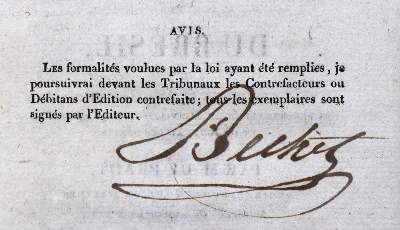 AVIS.
Les formalités voulues par la loi ayant été remplies, je
poursuivrai devant les Tribunaux les Contrefacteurs ou
Débitans d'Edition contrefaite; tous les exemplaires sont
signés par l'Editeur.
Béchet